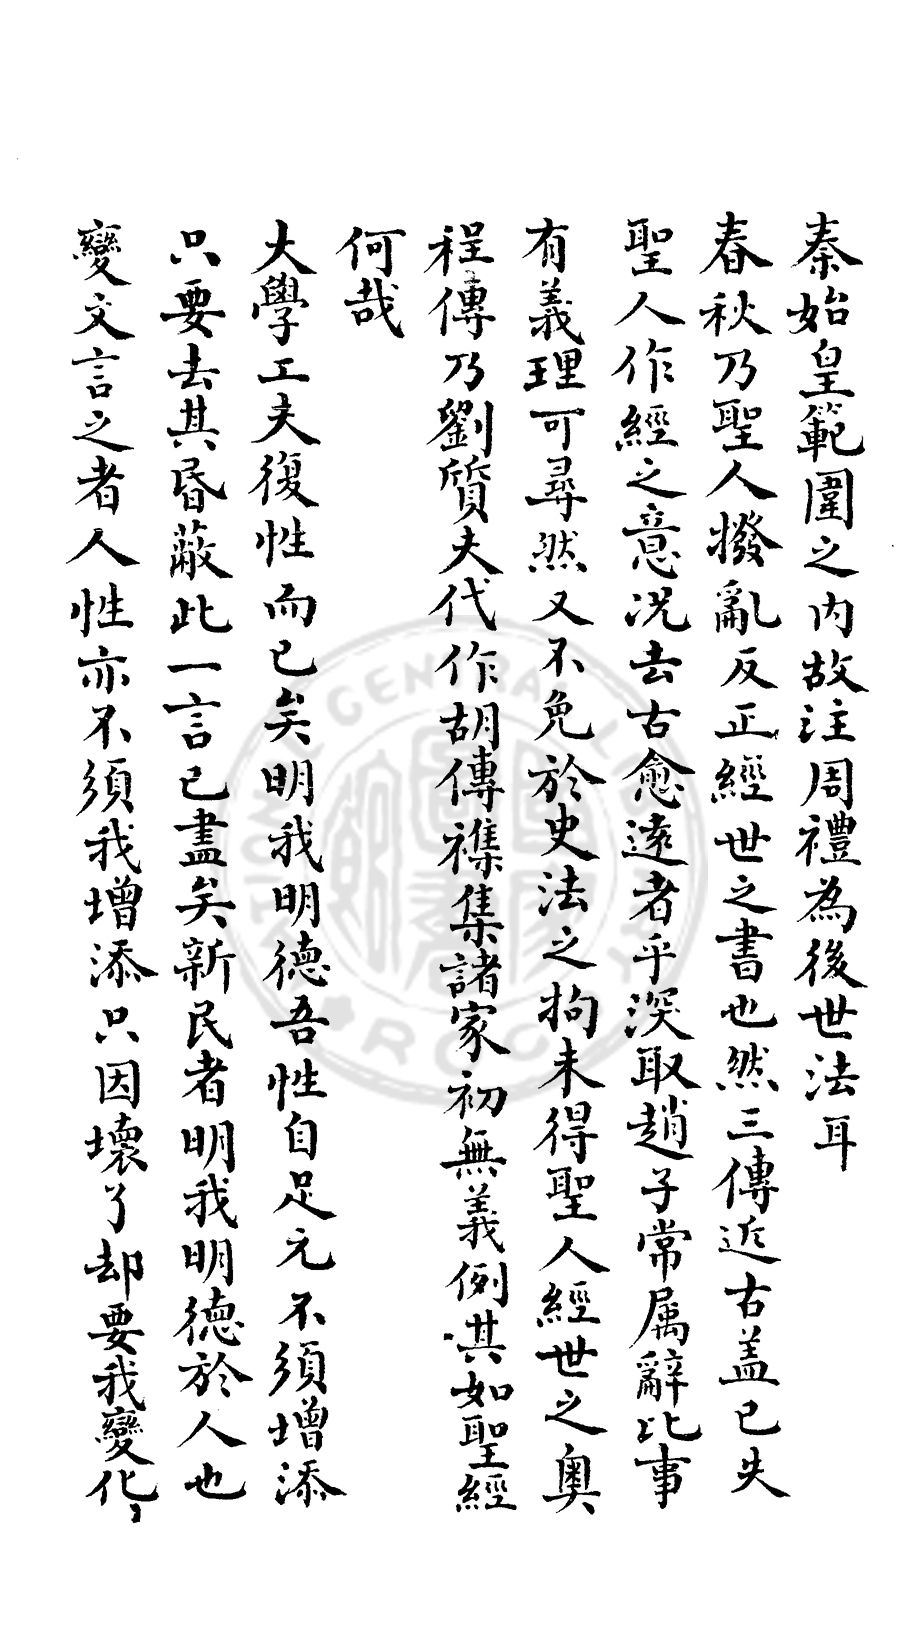 秦始皇範圍之内故注周禮為後世法耳
春秋乃聖人撥亂反正經世之書也然三傳近古盖已失
聖人作經之意況去古愈遠者乎深取趙子常属辭比事
有義理可尋然又不免於史法之拘未得聖人經世之奥
程傳乃劉質夫代作胡傳襍集諸家初無義例其如聖經
何哉
大學工夫復性而已矣明我明德吾性自足元不須增添
只要去其昏蔽此一言已盡矣新民者明我明德於人也
變文言之者人性亦不須我增添只因壞了却要我變化
NATIONAL CENTRAL LIBRARY
R.O.C